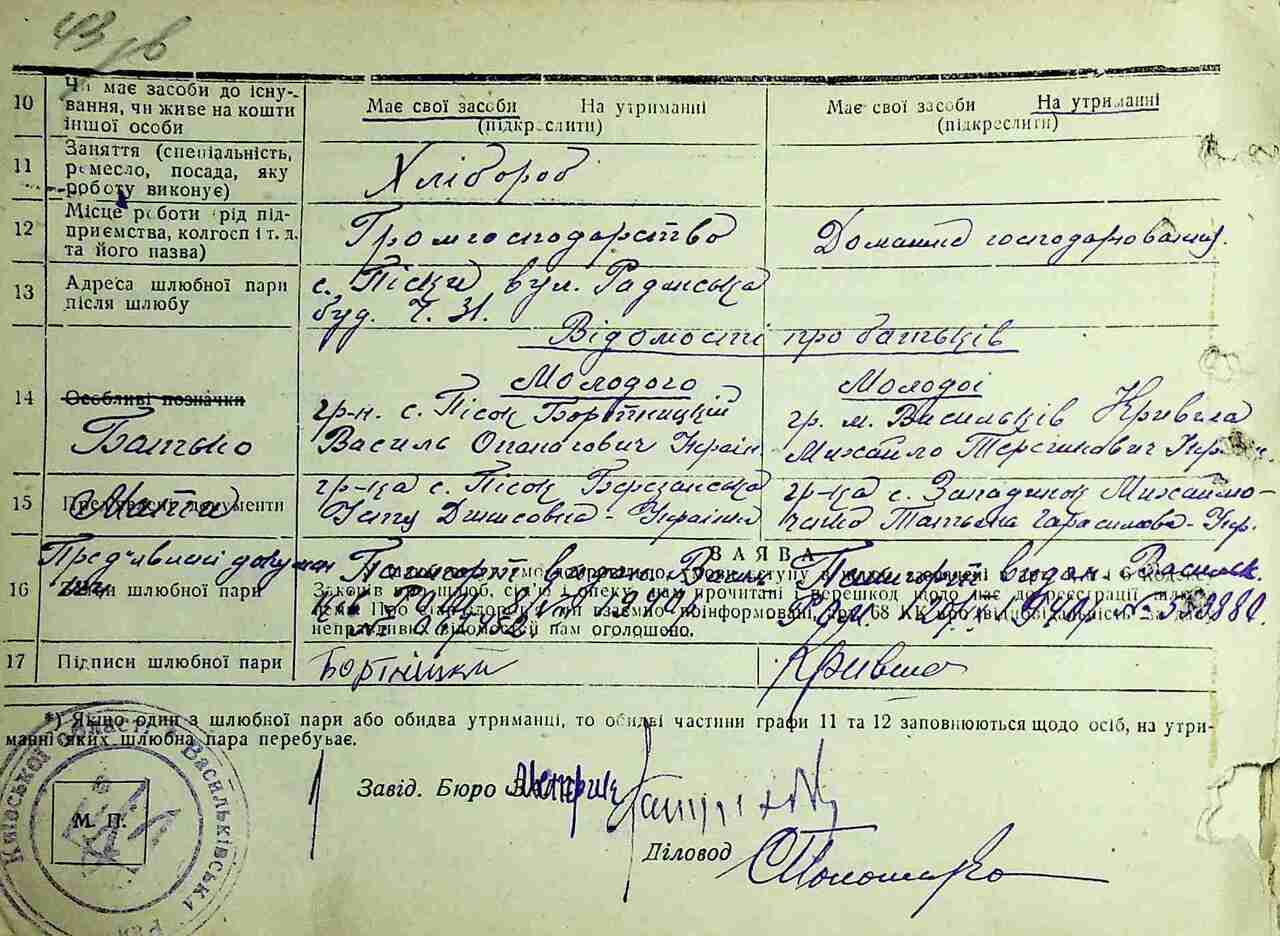 43 зв
10 Чи має засоби до існу-
вання, чи живе на кошти
іншої особи
Має свої засоби На утриманні
(підкреслити)
Має свої засоби На утриманні
(підкреслити)
11 Заняття (спеціальність,
ремесло, посада, яку
роботу виконує)
Хлібороб
12 Місце роботи рід під-
приємства, колгосп і т. д.
та його назва)
Громгосподарство
Домашнє господарювання.
13 Адреса шлюбної пари
після шлюбу
с. Піски вул. Радянська
буд. Ч. 31.
Відомості про батьків
14 Особливі позначки
Батько
Молодого
гр-н. с. Пісок Бортницкій
Василь Опанасович Украін.
Молодоі
гр. м. Васильків Кривша
Михайло Терешкович Укр
15 документи
Мати
гр-ка с. Пісок Березанська
Денисовна - Украінка
гр-ка с. Западинок Михаймо-
Татьяна Гарасимова - Укр.
Пред'явлені докумен
ти
ЗАЯВА
16 шлюбної пари
Пашпорт видан. Васильк.
шлюб, опеку, нам прочитані і перешкод щодо нас до реєстрації
Про взаємно поінформовані, 68 КК про відповідальність за
неправдиві відомості нам оголошено.
17 Підписи шлюбної пари
Бортніцки
Кривша
*) Якщо один з шлюбної пари або обидва утриманці, то обидві частини графи 11 та 12 заповнюються щодо осіб, на утри-
манні яких шлюбна пара перебуває.
Завід. Бюро
М. П.
Діловод
Київської області Васильківська